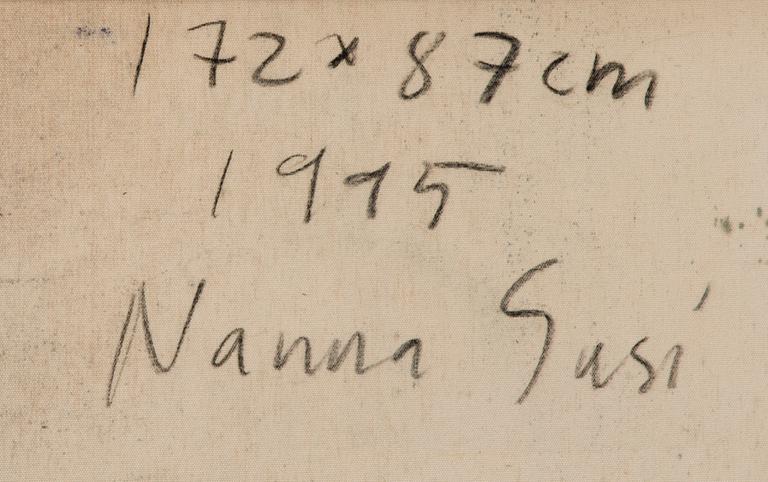 172 x 87 cm
1995
Nanna Susi